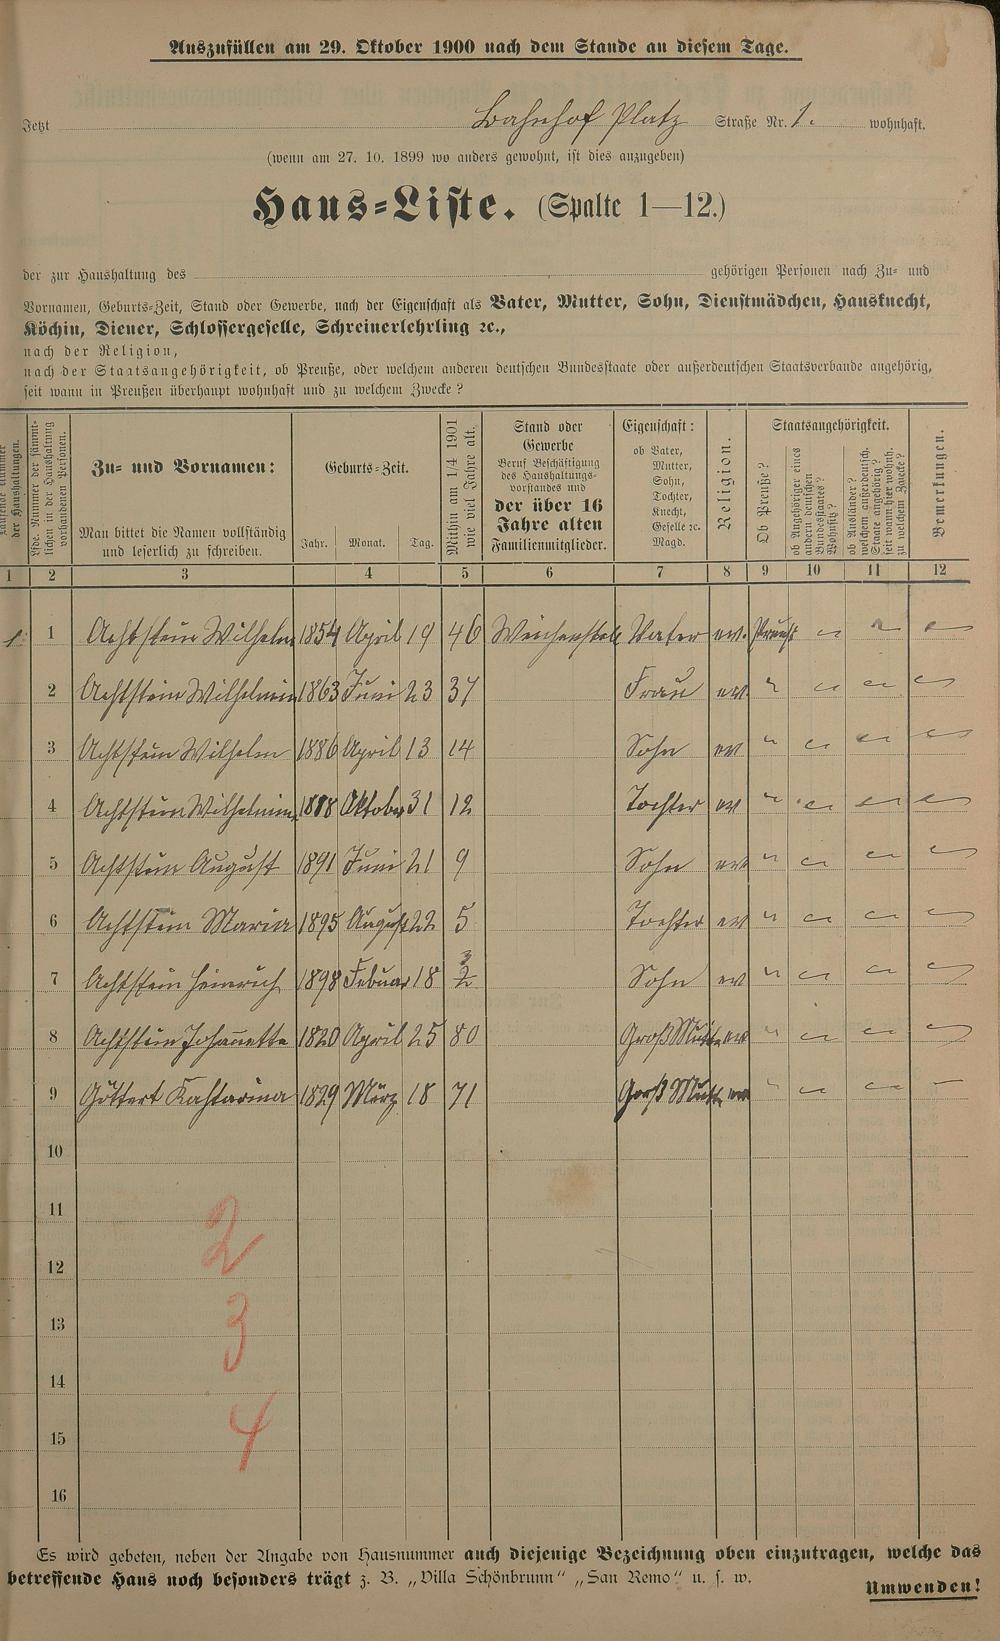 Auszufüllen am 29. Oktober 1900 nach dem Stande an diesem Tage.
Jetzt Bahnhof Platz Straße Nr. 1. wohnhaft.
(wenn am 27. 10. 1899 wo anders gewohnt, ist dies anzugeben)
Haus-Liste. (Spalte 1—12.)
der zur Haushaltung des gehörigen Personen nach Zu- und
Vornamen, Geburts-Zeit, Stand oder Gewerbe, nach der Eigenschaft als Vater, Mutter, Sohn, Dienstmädchen, Hausknecht,
Köchin, Diener, Schlossergeselle, Schreinerlehrling ꝛc.,
nach der Religion,
nach der Staatsangehörigkeit, ob Preuße, oder welchem anderen deutschen Bundesstaate oder außerdeutschen Staatsverbande angehörig,
seit wann in Preußen überhaupt wohnhaft und zu welchem Zwecke?
Laufende Nummer der Haushaltungen.
Lfde. Nummer der sämmtlichen in der Haushaltung vorhandenen Personen.
Zu- und Vornamen:
Man bittet die Namen vollständig
und leserlich zu schreiben.
Geburts-Zeit.
Jahr. Monat. Tag.
Mithin am 1/4 1901
wie viel Jahre alt.
Stand oder
Gewerbe
Beruf Beschäftigung
des Haushaltungs-
vorstandes und
der über 16
Jahre alten
Familienmitglieder.
Eigenschaft:
ob Vater,
Mutter,
Sohn,
Tochter,
Knecht,
Geselle ꝛc.
Magd.
Religion.
Staatsangehörigkeit.
Ob Preuße?
ob Angehöriger eines
andern deutschen
Bundesstaates?
Wohnsitz?
ob Ausländer?
welchem außerdeutsch.
Staate angehörig?
seit wann hier wohnh.
zu welchem Zwecke?
Bemerkungen.
1 2 3 4 5 6 7 8 9 10 11 12
1. 1 Achtstein Wilhelm 1854 April 19 46 Vater ev. Preuße
2 Achtstein Wilhelmin 1863 Juni 23 37 Frau ev. "
3 Achtstein Wilhelm 1886 April 13 14 Sohn ev "
4 Achtstein Wilhelmin 1888 Oktober 31 12 Tochter ev "
5 Achtstein August 1891 Juni 21 9 Sohn ev "
6 Achtstein Maria 1895 August 22 5 Tochter ev "
7 Achtstein Heinrich 1898 Februar 18 2 3 Sohn ev "
8 Achtstein Johanette 1820 April 25 80 Groß Mutter ev "
9 Göttert Kahtarina 1829 März 18 71 Groß Mutt ev "
10
11
2
12
13
3
14
4
15
16
Es wird gebeten, neben der Angabe von Hausnummer auch diejenige Bezeichnung oben einzutragen, welche das
betreffende Haus noch besonders trägt z. B. „Villa Schönbrunn“ „San Remo“ u. s. w.
Umwenden!